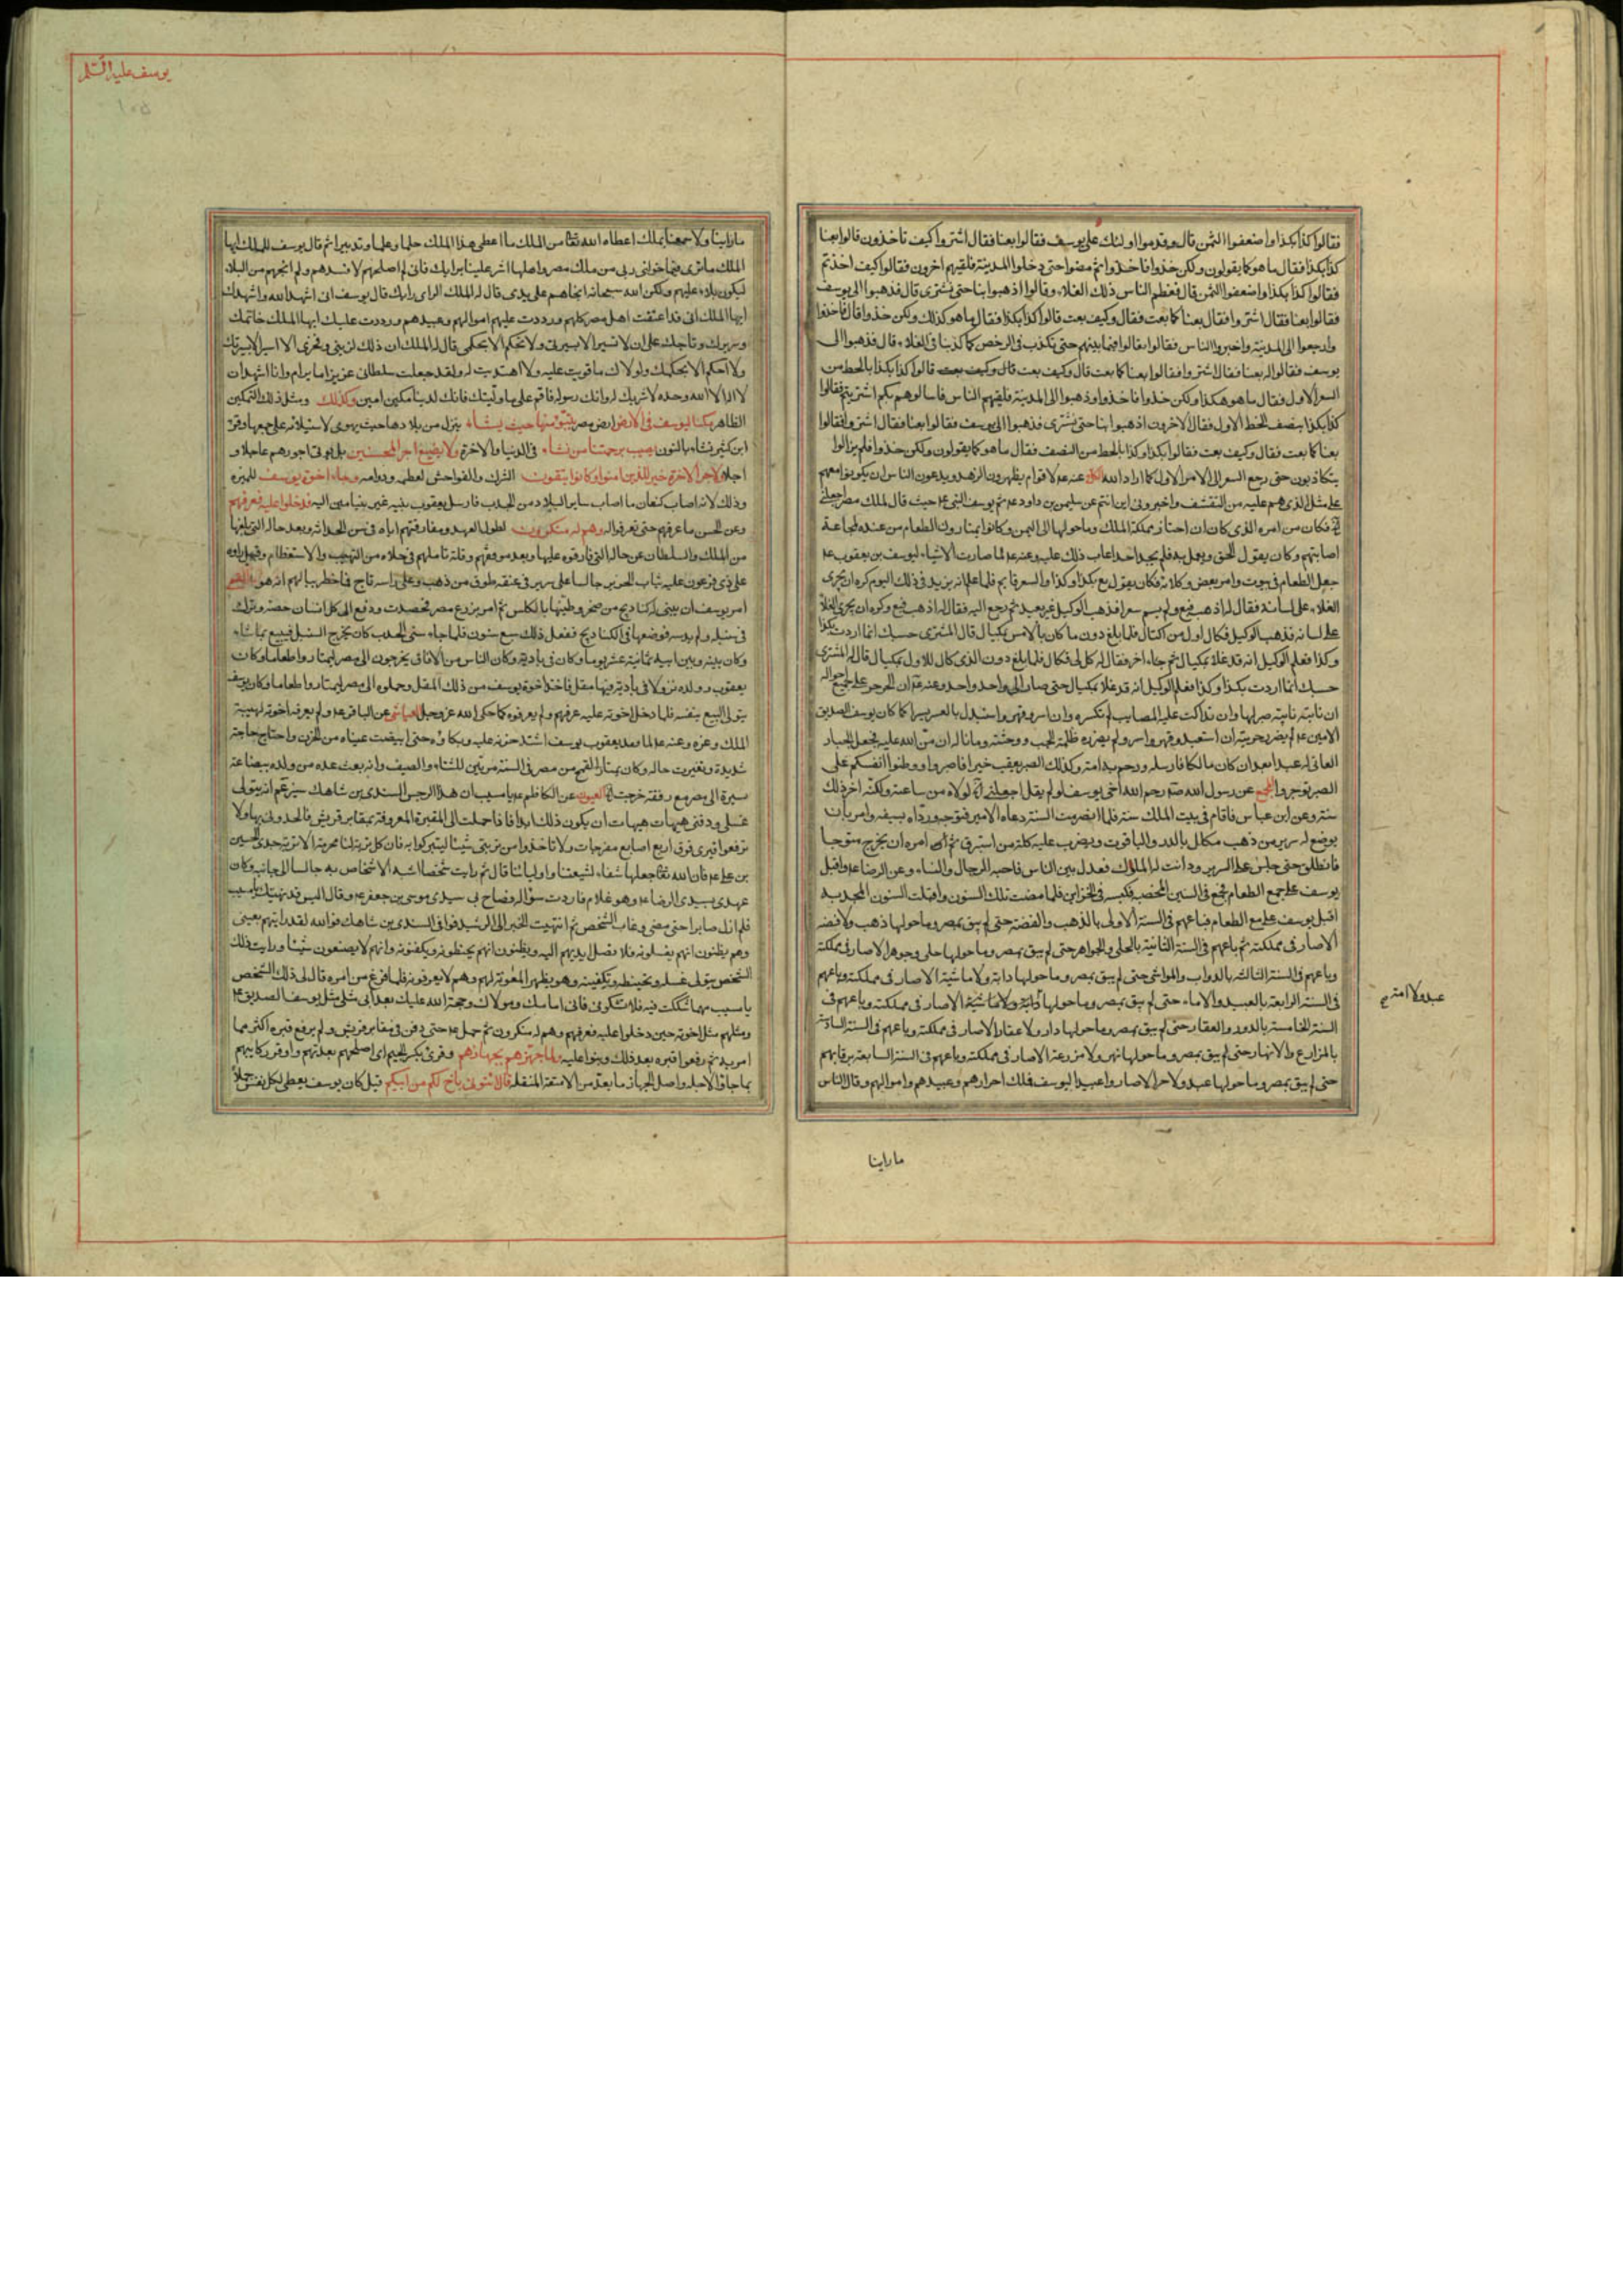 فقالوا كذا بكذا واضعفوا الثمن قال وقدموا اولئك على يوسف فقالوا بعنا فقال اشتروا كيف تاخذون قالوا بعنا
كذا بكذا فقال ما هو كما يقولون ولكن خذوا فاخذوا ثم مضوا حتى دخلوا المدينة فلقيهم اخرون فقالوا كيف اخذتم
فقالوا كذا بكذا واضعفوا الثمن قال فعظم الناس ذلك الغلاء وقالوا اذهبوا بنا حتى نشترى قال فذهبوا الى يوسف
فقالوا بعنا فقال اشتروا فقال بعنا كما بعت فقال وكيف بعت قالوا كذا بكذا فقال ما هو كذلك ولكن خذوا قال فاخذوا
ورجعوا الى المدينة واخبروا الناس فقالوا فيما بينهم حتى نكذب فى الرخص كما كذبنا فى الغلاء قال فذهبوا الى
يوسف فقالوا له بعنا فقال اشتروا فقالوا بعنا كما بعت قال وكيف بعت قالوا كذا بكذا بالحط من
السعر الاول فقال ما هو هكذا ولكن خذوا فاخذوا وذهبوا الى المدينة فلقيهم الناس فسالوهم بكم اشتريتم فقالوا
كذا بكذا بنصف الحط الاول فقال الاخرون اذهبوا بنا حتى نشترى فذهبوا الى يوسف فقالوا بعنا فقال اشتروا فقالوا
بعنا كما بعت فقال وكيف بعت فقالوا بكذا وكذا بالحط من النصف فقال ما هو كما يقولون ولكن خذوا فلم يزالوا
يتكاذبون حتى رجع السعر الى الامر الاول كما اراد الله عنه لاقوام يظهرون الزهد ويدعون الناس ان يكونوا معهم
على مثل الذى هم عليه من التقشف واخبرونى اين انتم عن سليمن بن داود ثم يوسف النبى حيث قال لملك مصر اجعلنى
فكان من امره الذى كان ان احتاز مملكة الملك وما حولها الى اليمن وكانوا يمتارون الطعام من عنده لمجاعة
اصابتهم وكان يقول الحق ويعمل به فلم نجد احدا عاب ذلك عليه وعنه لما صارت الاشياء ليوسف بن يعقوب
جعل الطعام فى بيوت وامر بعض وكلائه فكان يقول بع بكذا وكذا والسعر قايم فلما علم انه يزيد فى ذلك اليوم كره ان يجرى
الغلاء على لسانه فقال له اذهب فبع ولم يسم سعرا فذهب الوكيل غير بعيد ثم رجع اليه فقال له اذهب فبع وكره ان يجرى الغلا
على لسانه فذهب الوكيل فكال اول من اكتال فلما بلغ دون ما كان بالامس بمكيال قال المشترى حسبك انما اردت بكذا
وكذا فعلم الوكيل انه قد غلا بمكيال ثم جاء اخر فقال له كل لى فكال فلما بلغ دون الذى كال للاول بمكيال قال له المشترى
حسبك انما اردت بكذا وكذا فعلم الوكيل انه قد غلا بمكيال حتى صار الى واحد واحد وعنه ان الحر حر على جميع احواله
ان نابته نايبة صبر لها وان تداكت عليه المصايب لم تكسره وان اسر وقهر واستبدل بالعسر يسرا كما كان يوسف الصديق
الامين لم يضرر حريته ان استعبد وقهر واسر ولم يضرره ظلمة الجب ووحشته وما ناله ان من الله عليه فجعل الجبار
العاتى له عبدا بعد ان كان مالكا فارسله ورحم به امة وكذلك الصبر يعقب خيرا فاصبروا ووطنوا انفسكم على
الصبر توجروا عن رسول الله رحم الله اخى يوسف لو لم يقل اجعلنى لولاه من ساعته ولكنه اخر ذلك
سنة وعن ابن عباس فاقام فى بيت الملك سنة فلما انصرمت السنة دعاه الامير فتوجه ورداه بسيفه وامر بان
يوضع له سرير من ذهب مكلل بالدر والياقوت ويضرب عليه كلة من استبرق ثم امره ان يخرج متوجا
فانطلق حتى جلس على السرير ودانت له الملوك فعدل بين الناس فاحبه الرجال والنساء وعن الرضا واقبل
يوسف على جمع الطعام فجمع فى السبع السنين المخصبة فكبسه فى الخزاين فلما مضت تلك السنون واقبلت السنون المجدبة
اقبل يوسف على بيع الطعام فباعهم فى السنة الاولى بالذهب والفضة حتى لم يبق بمصر وما حولها ذهب ولا فضة
الا صار فى مملكته ثم باعهم فى السنة الثانية بالحلى والجواهر حتى لم يبق بمصر وما حولها حلى وجوهر الا صار فى مملكته
وباعهم فى السنة الثالثة بالدواب والمواشى حتى لم يبق بمصر وما حولها دابة ولا ماشية الا صار فى مملكته وباعهم
فى السنة الرابعة بالعبيد والاماء حتى لم يبق بمصر وما حولها الا صار فى مملكته وباعهم فى
عبد ولا امة
السنة الخامسة بالدور والعقار حتى لم يبق بمصر وما حولها دار ولا عقار الا صار فى مملكته وباعهم فى السنة السادسة
بالمزارع والانهار حتى لم يبق بمصر وما حولها نهر ولا مزرعة الا صار فى مملكته وباعهم فى السنة السابعة برقابهم
حتى لم يبق بمصر وما حولها عبد ولا حر الا صار واعبيدا ليوسف فملك احرارهم وعبيدهم واموالهم وقال الناس
ماراينا
يوسف عليه السلم
١٠٥
ماراينا ولا سمعنا بملك اعطاه الله من الملك ما اعطى هذا الملك حلما وعلما وتدبيرا ثم قال يوسف للملك ايها
الملك ما ترى فيما خولنى ربى من ملك مصر واهلها اشر علينا برايك فانى لم اصلحهم لافسدهم ولم انجهم من البلاء
ليكون بلاء عليهم ولكن الله سبحانه انجاهم على يدى قال له الملك الراى رايك قال يوسف انى اشهد الله واشهدك
ايها الملك انى قد اعتقت اهل مصر كلهم ورددت عليهم اموالهم وعبيدهم ورددت عليك ايها الملك خاتمك
وسريرك وتاجك على ان لا تسير الا بسيرتى ولا تحكم الا بحكمى قال له الملك ان ذلك لزينى وفخرى الا اسير الا بسيرتك
ولا احكم الا بحكمك ولولاك ما قويت عليه ولا اهتديت له ولقد جعلت سلطانى عزيزا ما يرام وانا اشهد ان
لا اله الا الله وحده لا شريك له وانك رسوله فاقم على ما وليتك فانك لدينا مكين امين وكذلك ومثل ذلك التمكين
الظاهر مكنا ليوسف فى الارض ارض مصر يتبوء منها حيث يشاء ينزل من بلادها حيث يهوى لاستيلائه على جميعها وقرء
ابن كثير نشاء بالنون نصيب برحمتنا من نشاء فى الدنيا والاخرة ولا نضيع اجر المحسنين بل نوفى اجورهم عاجلا و
اجلا ولاجر الاخرة خير للذين امنوا وكانوا يتقون الشرك والفواحش لعظمه ودوامه وجاء اخوة يوسف للميرة
وذلك لانه اصاب كنعان ما اصاب ساير البلاد من الجدب فارسل يعقوب بنيه غير بنيامين اليه فدخلوا عليه فعرفهم
وعن الحسن ما عرفهم حتى تعرفوا له وهم له منكرون لطول العهد ومفارقتهم اياه فى سن الحداثة وبعد حاله التى
من الملك والسلطان عن حاله التى فارقوه عليها وبعد موقعهم وقلة تاملهم فى حلاه من التهيب والاستعظام وقيل راوه
على زى فرعون عليه ثياب الحرير جالسا على سرير فى عنقه طوق من ذهب وعلى راسه تاج فما خطر ببالهم انه هو
امر يوسف ان يبنى له كناديج من صخر وطينها بالكلس ثم امر بزرع مصر فحصدت ودفع الى كل انسان حصته وترك
فى سنبله ولم يدسه فوضعها فى الكناديج ففعل ذلك سبع سنين فلما جاء سنى الجدب كان يخرج السنبل فيبيع بما شاء
وكان بينه وبين ابيه ثمانية عشر يوما وكان فى بادية وكان الناس من الافاق يخرجون الى مصر ليمتاروا طعاما وكان
يعقوب وولده نزولا فى بادية فيها مقل فاخذ اخوة يوسف من ذلك المقل وحملوه الى مصر ليمتاروا طعاما وكان يوسف
يتولى البيع بنفسه فلما دخل اخوته عليه عرفهم ولم يعرفوه كما حكى الله عز وجل العياشى عن الباقر ولم يعرفه اخوته لهيبة
الملك وعزه وعنه لما فقد يعقوب يوسف اشتد حزنه عليه وبكاؤه حتى ابيضت عيناه من الحزن واحتاج حاجة
شديدة وتغيرت حاله وكان يمتار القمح من مصر فى السنة مرتين للشتاء والصيف وانه بعث عدة من ولده ببضاعة
يسيرة الى مصر مع رفقة خرجت العيون عن الكاظم يا مسيب ان هذا الرجس السندى بن شاهك سيزعم انه يتولى
غسلى ودفنى هيهات هيهات ان يكون ذلك ابدا فاذا حملت الى المقبرة المعروفة بمقابر قريش فالحدونى بها ولا
ترفعوا قبرى فوق اربع اصابع مفرجات ولا تاخذوا من تربتى شيئا لتتبركوا به فان كل تربة لنا محرمة الا تربة جدى الحسين
بن على فان الله جعلها شفاء لشيعتنا واوليائنا قال ثم رايت شخصا اشبه الاشخاص به جالسا الى جانبه وكان
عهدى بسيدى الرضا وهو غلام فاردت سؤاله فصاح بى سيدى موسى بن جعفر وقال اليس قد نهيتك يا مسيب
فلم ازل صابرا حتى مضى وغاب الشخص ثم انتهيت الخبر الى الرشيد فوافى السندى بن شاهك فوالله لقد رايتهم بعينى
وهم يظنون انهم يغسلونه فلا تصل ايديهم اليه ويظنون انهم يحنطونه ويكفنونه وانهم لا يصنعون شيئا ورايت ذلك
الشخص يتولى غسله وتحنيطه وتكفينه وهو يظهر المعونة لهم وهم لا يعرفونه فلما فرغ من امره قال لى ذلك الشخص
يا مسيب مهما شككت فيه فلا تشكن فى فانى امامك ومولاك وحجة الله عليك بعد ابى مثلى مثل يوسف الصديق
ومثلهم مثل اخوته حين دخلوا عليه فعرفهم وهم له منكرون ثم حمل حتى دفن فى مقابر قريش ولم يرفع قبره اكثر مما
امر به ثم رفعوا قبره بعد ذلك وبنوا عليه ولما جهزهم بجهازهم وقرئ بكسر الجيم اى اصلحهم بعدتهم واوقر ركابهم
بما جاؤا لاجله واصل الجهاز ما يعد من الامتعة للنقلة قال ائتونى باخ لكم من ابيكم قيل كان يوسف يعطى لكل نفس حملا